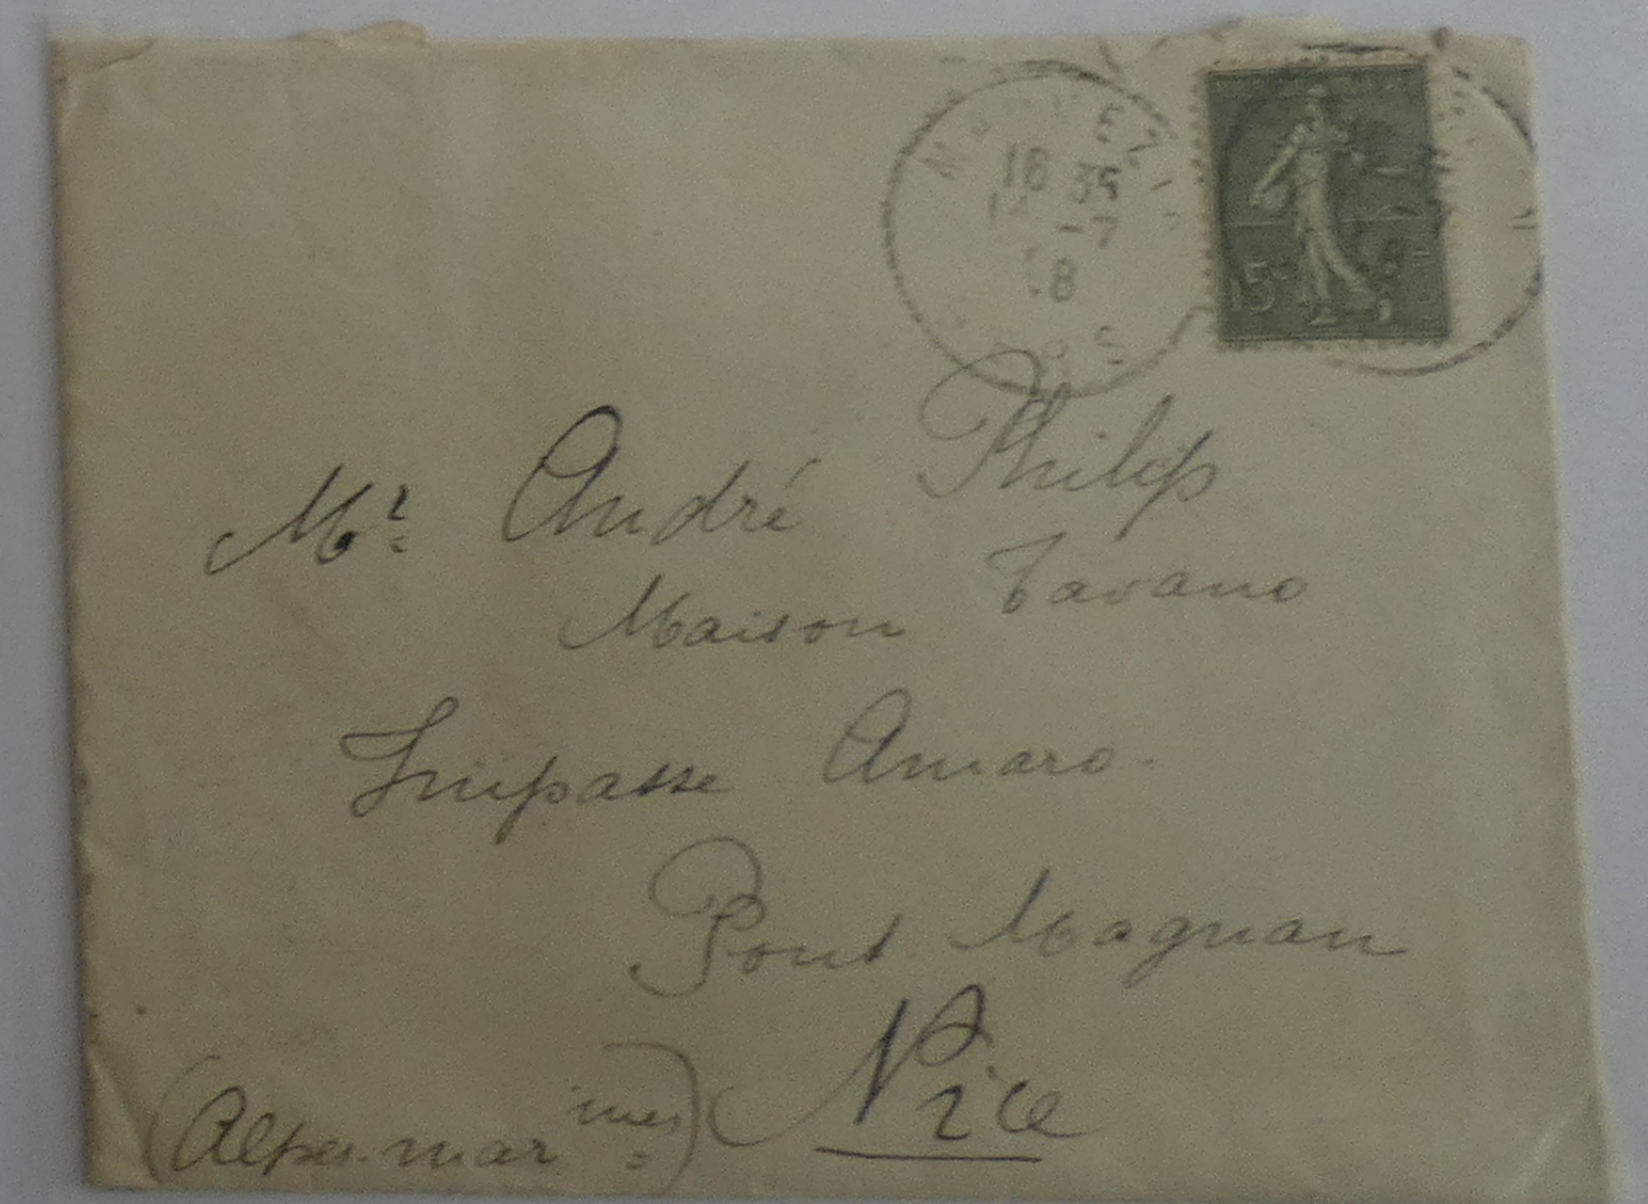 18 35
18
15
Mr André Philip
Maison Tavano
Impasse Amaro.
Pont Magnan
Nice
(Alpes-marimes)